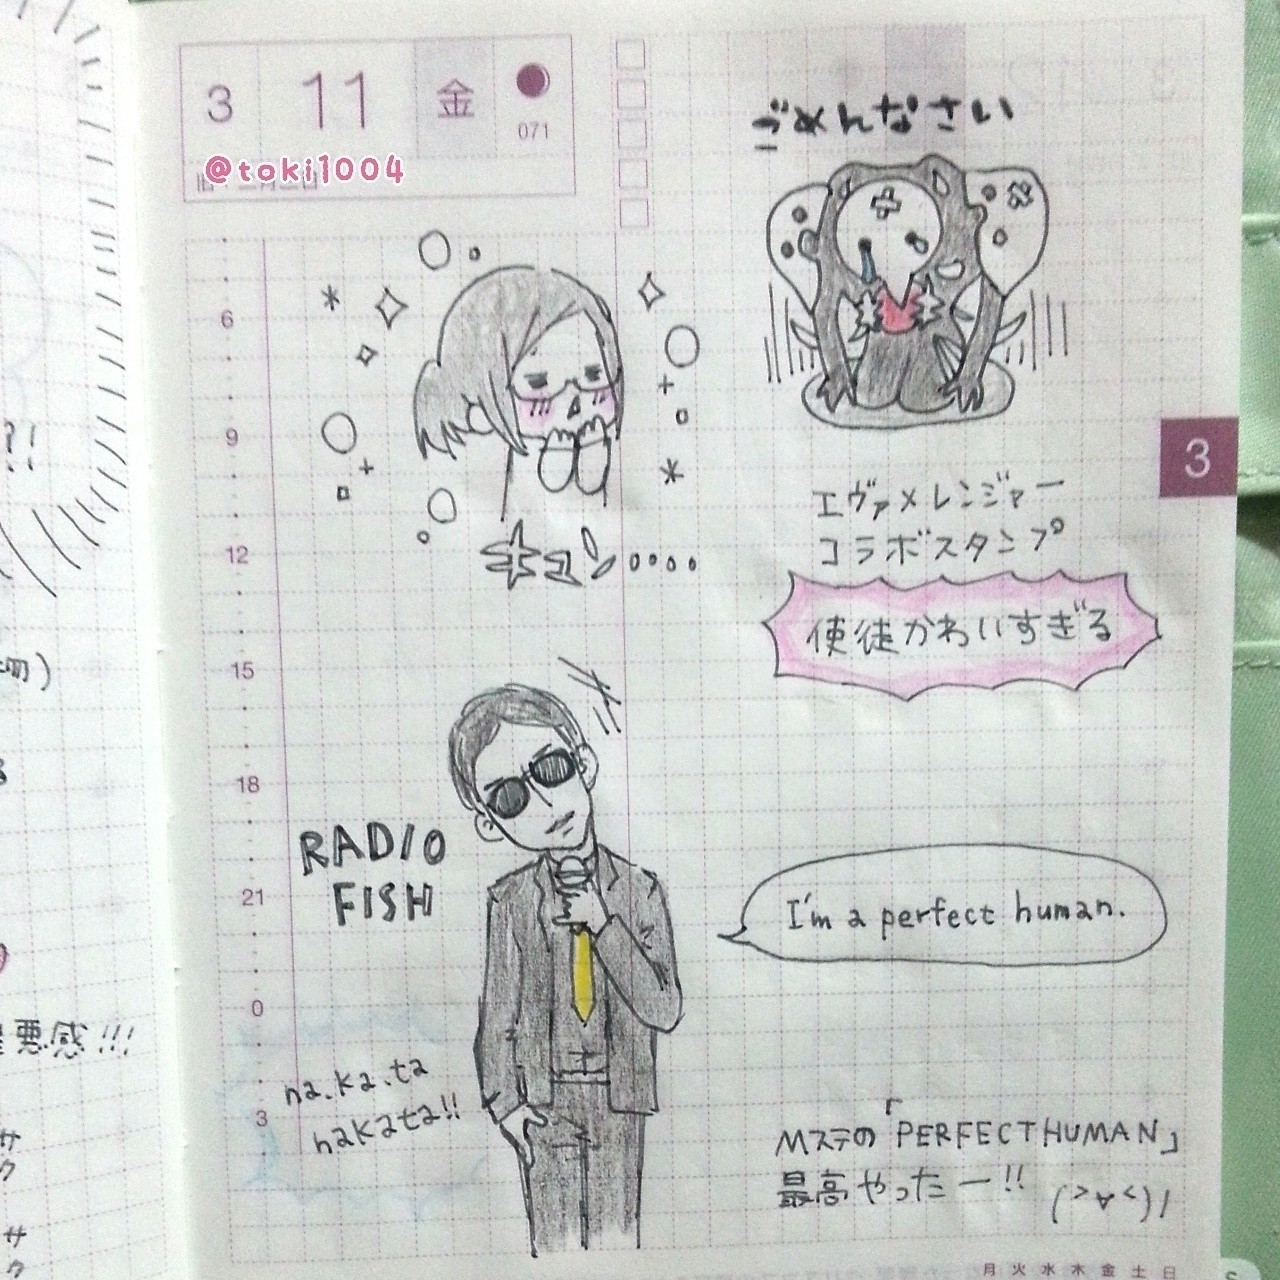 3 11 金
071
@toki1004
ごめんなさい
6
9
12
15
18
21
0
3
キュン....
エヴァメレンジャー
コラボスタンプ
使徒かわいすぎる
3
RADIO
FISH
I'm a perfect human.
na.ka.ta
nakata!!
Mステの「PERFECT HUMAN」
最高やったー!! (>∀<)ﾉ
月 火 水 木 金 土 日
?!
切)
悪感!!!
サ
ク
サ
ク